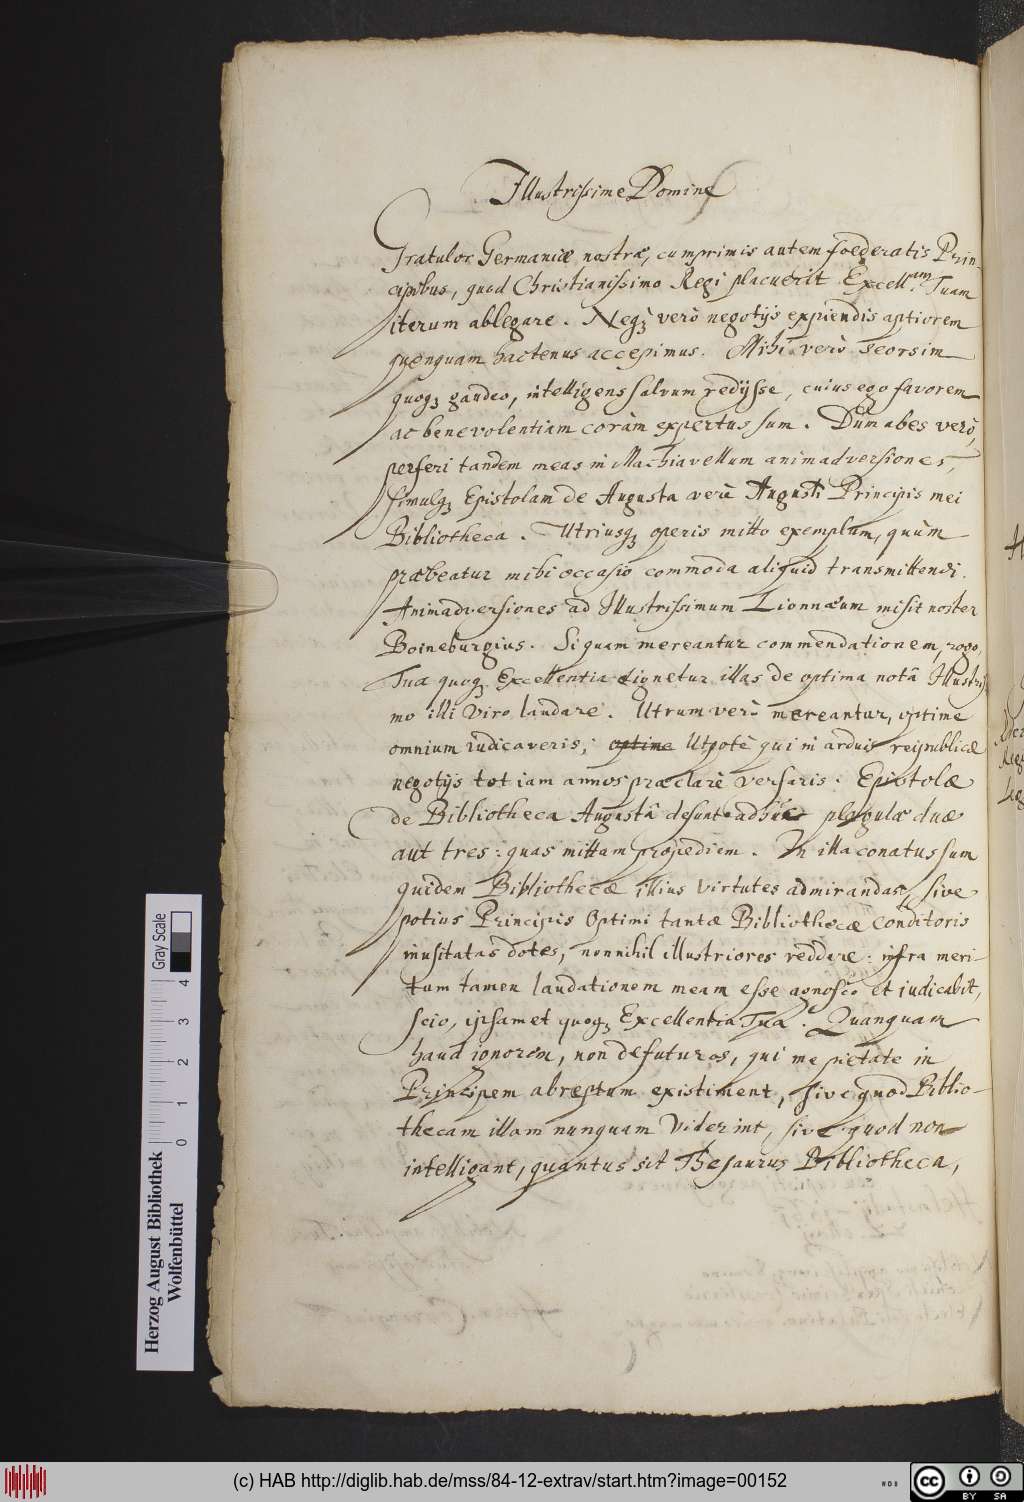 Illustrissime Domine
Gratulor Germaniæ nostræ, cumprimis autem foederatis Prin-
cipibus, quod Christianissimo Regi placuerit Excell.am Tuam
iterum ablegare. Neqꝫ verò negotijs expiendis aptiorem
quenquam hactenus accepimus. Mihi verò seorsim
quoqꝫ gaudeo, intelligens salvum redijsse, cuius ego favorem
ac benevolentiam coràm expertus sum. Dum abes verò,
perferi tandem meas in Machiavellum animadversiones,
simulqꝫ Epistolam de Augusta verè Augusti Principis mei
Bibliotheca. Utriusqꝫ operis mitto exemplum, quùm
præbeatur mihi occasio commoda aliquid transmittendi.
Animadversiones ad Illustrissimum Lionnæum misit noster
Boineburgius. Si quam mereantur commendationem, rogo,
Tua quoqꝫ Excellentia dignetur illas de optima notâ Illustris-
mo illi Viro laudare. Utrum verò mereantur, optime
omnium iudicaveris; optime Utpotè qui in arduis reipublicæ
negotijs tot iam annos præclarè versaris: Epistolæ
de Bibliotheca Augustâ desunt adhuc plagulæ duæ
aut tres: quas mittam propediem. In illa conatus sum
quidem Bibliothecæ illius virtutes admirandas, sive
potius Principis Optimi tantæ Bibliothecæ Conditoris
inusitatas dotes, nonnihil illustriores reddere: infra meri-
tum tamen laudationem meam esse agnosco et iudicabit,
scio, ipsamet quoqꝫ Excellentia Tua. Quanquam
haud ignorem, non defuturos, qui me pietate in
Principem abreptum existiment, sive quod Biblio-
thecam illam nunquam viderint, sive quod non
intelligant, quantus sit Thesaurus Bibliotheca,
Herzog August Bibliothek
Wolfenbüttel
0 1 2 3 4
Gray Scale
(c) HAB http://diglib.hab.de/mss/84-12-extrav/start.htm?image=00152
cc BY SA